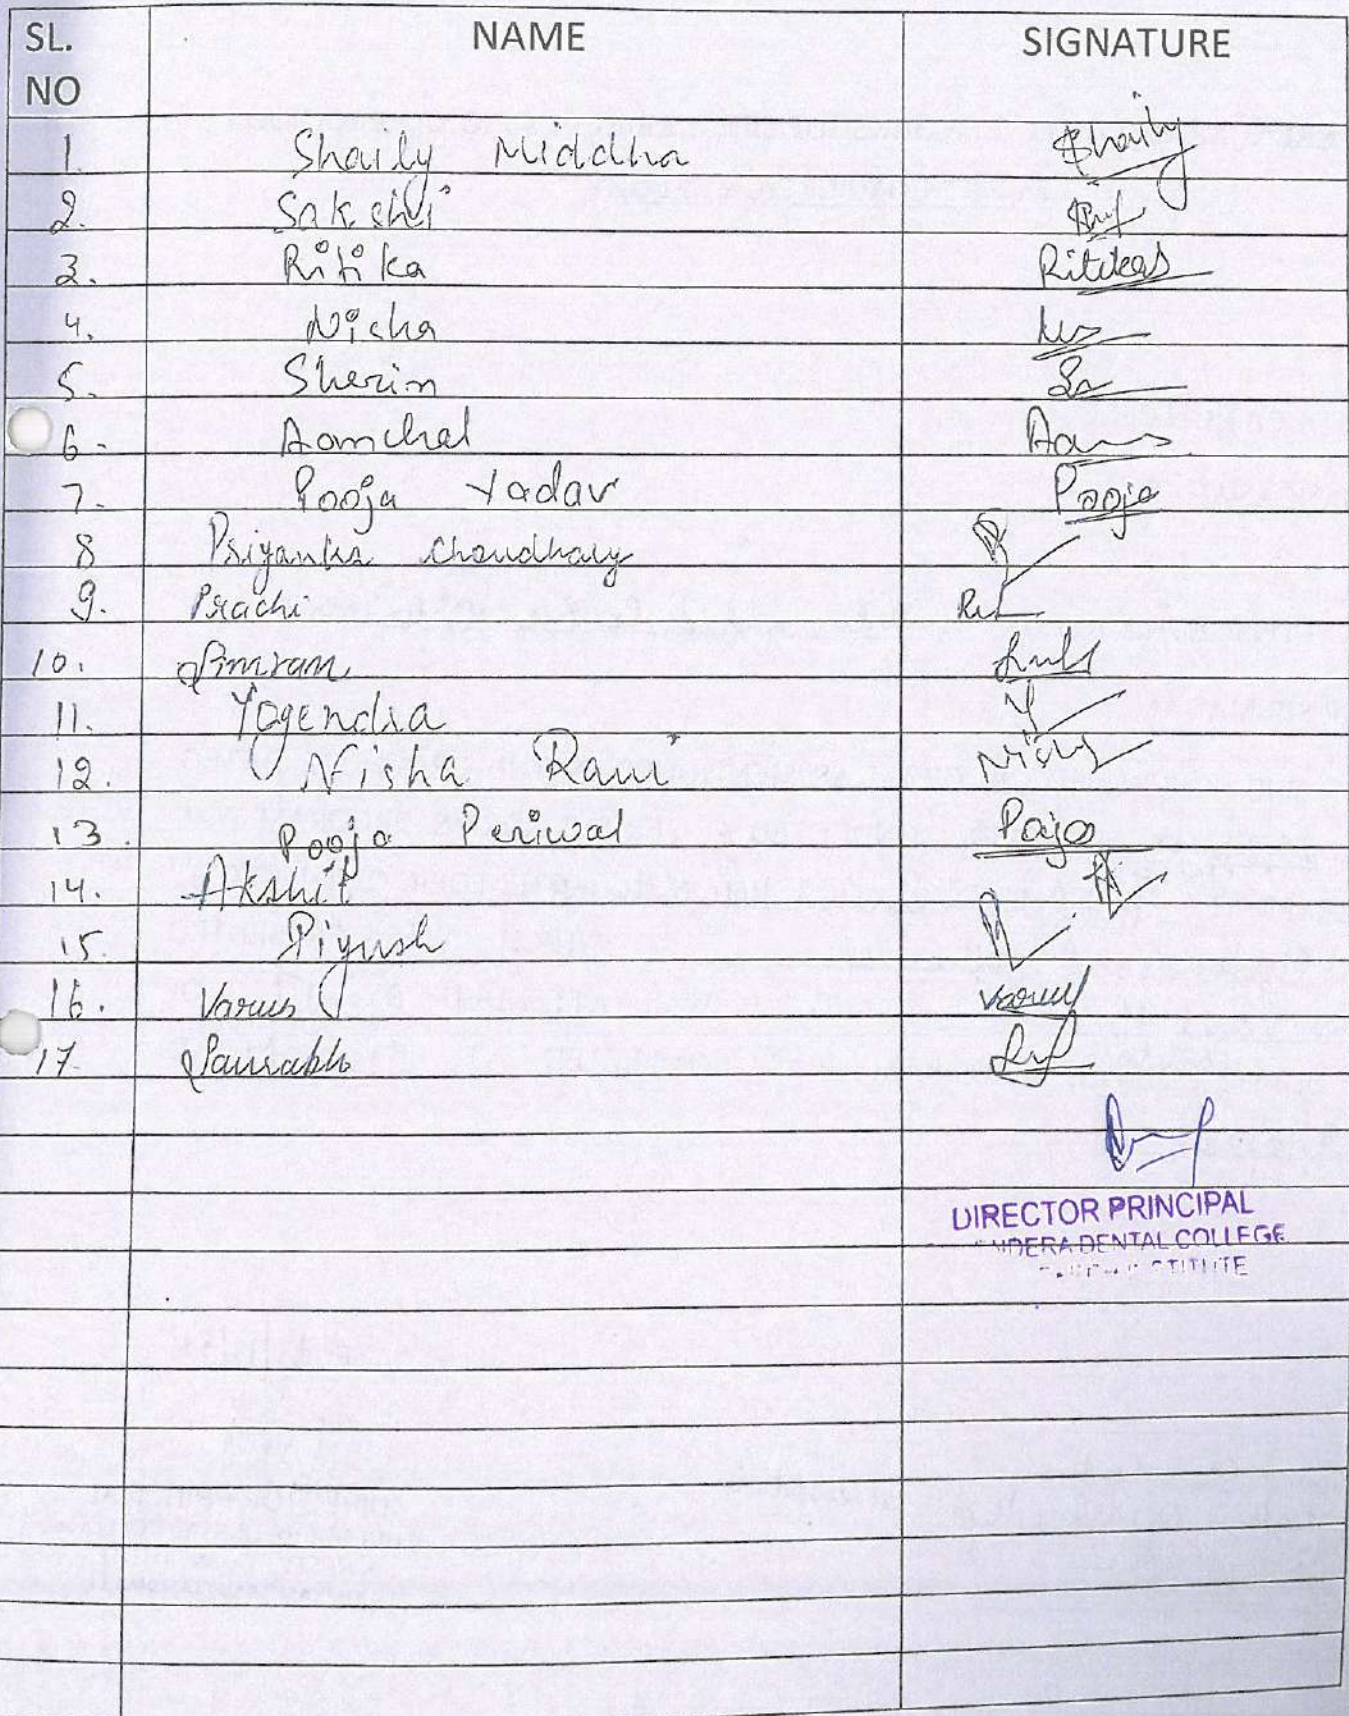 SL. NO NAME SIGNATURE
1. Shaily Middha Shaily
2. Sakshi
3. Ritika Ritika
4. Nisha
5. Sherin
6. Aanchal Aan
7. Pooja Yadav Pooja
8 Priyanka Choudhary
9. Prachi
10. Simran
11. Yogendra Y
12. Nisha Rani Nisha
13. Pooja Periwal Pooja
14. Akshit
15. Piyush
16. Varun Varun
17. Saurabh
DIRECTOR PRINCIPAL
DENTAL COLLEGE